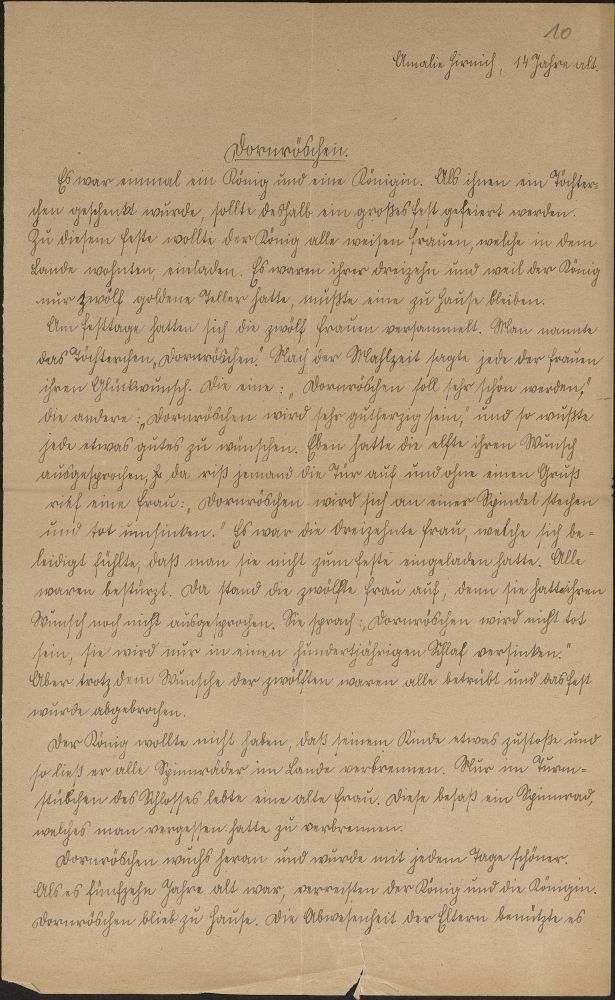 10
Amalie Hirnich, 14 Jahre alt.
Dornröschen.
Es war einmal ein König und eine Königin. Als ihnen ein Töchter-
chen geschenkt wurde, sollte deshalb ein großes Fest gefeiert werden.
Zu diesem Feste wollte der König alle weisen Frauen, welche in dem
Lande wohnten, einladen. Es waren ihrer dreizehn und weil der König
nur zwölf goldene Teller hatte, mußte eine zu Hause bleiben.
Am Festtage hatten sich die zwölf Frauen versammelt. Man nannte
das Töchterchen „Dornröschen." Nach der Mahlzeit sagte jede der Frauen
ihren Glückwunsch. Die eine: „Dornröschen soll sehr schön werden,"
die andere: „Dornröschen wird sehr gutherzig sein," und so wußte
jede etwas gutes zu wünschen. Eben hatte die elfte ihren Wunsch
ausgesprochen, da riß jemand die Tür auf und ohne einen Gruß
rief eine Frau: „Dornröschen wird sich an einer Spindel stechen
und tot umsinken." Es war die dreizehnte Frau, welche sich be-
leidigt fühlte, daß man sie nicht zum Feste eingeladen hatte. Alle
waren bestürzt. Da stand die zwölfte Frau auf, denn sie hatte ihren
Wunsch noch nicht ausgesprochen. Sie sprach: „Dornröschen wird nicht tot
sein, sie wird nur in einen hundertjährigen Schlaf versinken."
Aber trotz dem Wunsche der zwölften waren alle betrübt und das Fest
wurde abgebrochen.
Der König wollte nicht haben, daß seinem Kinde etwas zustoße und
so ließ er alle Spinnräder im Lande verbrennen. Nur im Turm-
stübchen des Schlosses lebte eine alte Frau. Diese besaß ein Spinnrad,
welches man vergessen hatte zu verbrennen.
Dornröschen wuchs heran und wurde mit jedem Tage schöner.
Als es fünfzehn Jahre alt war, verreisten der König und die Königin.
Dornröschen blieb zu Hause. Die Abwesenheit der Eltern benützte es